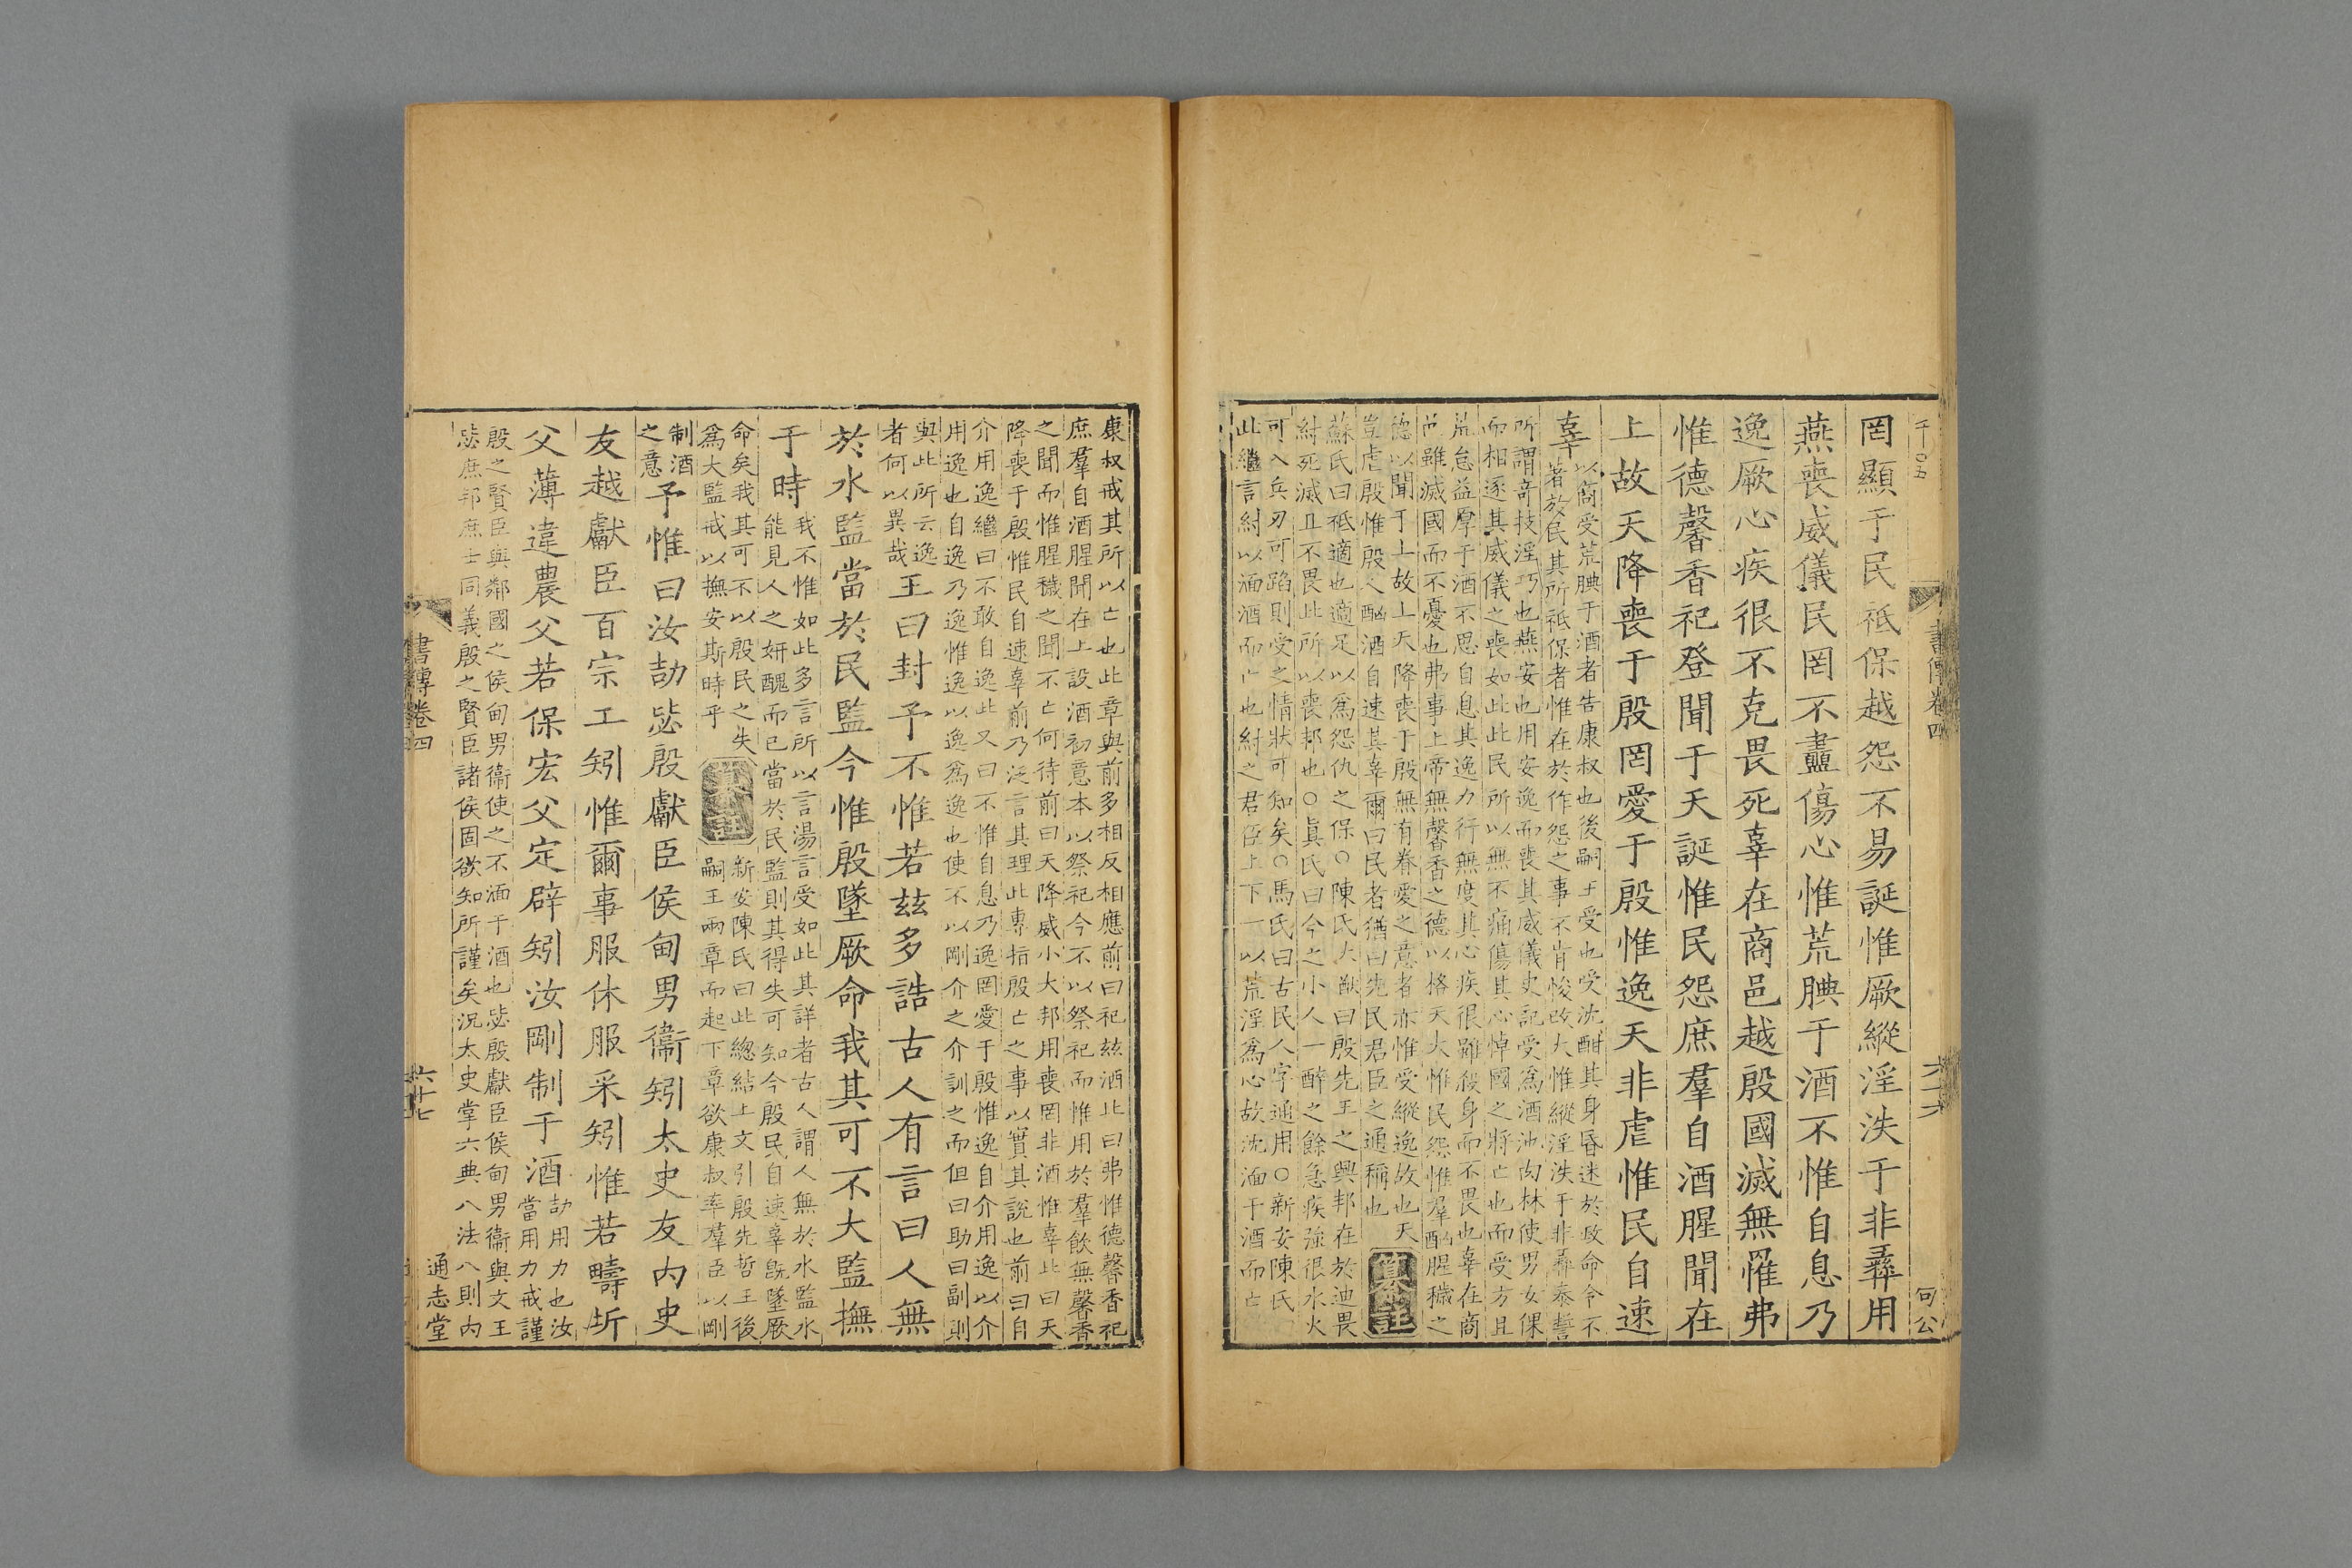 書傳卷四
六十六
罔顯于民祗保越怨不易誕惟厥縱淫泆于非彝用
燕喪威儀民罔不衋傷心惟荒腆于酒不惟自息乃
逸厥心疾很不克畏死辜在商邑越殷國滅無罹弗
惟德馨香祀登聞于天誕惟民怨庶羣自酒腥聞在
上故天降喪于殷罔愛于殷惟逸天非虐惟民自速
辜
以商受荒腆于酒者告康叔也後嗣王受也受沈酣其身昏迷於政命令不
著於民其所祗保者惟在於作怨之事不肯悛改大惟縱淫泆于非彝泰誓
所謂奇技淫巧也燕安也用安逸而喪其威儀史記受爲酒池肉林使男女倮
而相逐其威儀之喪如此此民所以無不痛傷其心悼國之將亡也而受方且
荒怠益厚于酒不思自息其逸力行無度其心疾很雖殺身而不畏也辜在商
邑雖滅國而不憂也弗事上帝無馨香之德以格天大惟民怨惟羣酗腥穢之
德以聞于上故上天降喪于殷無有眷愛之意者亦惟受縱逸故也天
豈虐殷惟殷人酗酒自速其辜爾曰民者猶曰先民君臣之通稱也
纂註
蘇氏曰祗適也適足以爲怨仇之保○陳氏大猷曰殷先王之興邦在於迪畏
紂死滅且不畏此所以喪邦也○眞氏曰今之小人一醉之餘急疾強很水火
可入兵刃可蹈則受之情狀可知矣○馬氏曰古民人字通用○新安陳氏曰
此繼言紂以湎酒而亡也紂之君臣上下一以荒淫爲心故沈湎于酒而亡
康叔戒其所以亡也此章與前多相反相應前曰祀玆酒此曰弗惟德馨香祀
庶羣自酒腥聞在上設酒初意本以祭祀今不以祭祀而惟用於羣飲無馨香
之聞而惟腥穢之聞不亡何待前曰天降威小大邦用喪罔非酒惟辜此曰天
降喪于殷惟民自速辜前乃泛言其理此專指殷亡之事以實其說也前曰自
介用逸繼曰不敢自逸此又曰不惟自息乃逸罔愛于殷惟逸自介用逸以介
用逸也自逸乃逸惟逸以逸爲逸也使不以剛介之介訓之而但曰助曰副則
與此所云逸
者何以異哉
王曰封予不惟若玆多誥古人有言曰人無
於水監當於民監今惟殷墜厥命我其可不大監撫
于時
我不惟如此多言所以言湯言受如此其詳者古人謂人無於水監水
能見人之妍醜而已當於民監則其得失可知今殷民自速辜旣墜厥
命矣我其可不以殷民之失
爲大監戒以撫安斯時乎
纂註
新安陳氏曰此總結上文引殷先哲王後
嗣王兩章而起下章欲康叔率羣臣以剛
制酒
之意
予惟曰汝劼毖殷獻臣侯甸男衞矧太史友內史
友越獻臣百宗工矧惟爾事服休服采矧惟若疇圻
父薄違農父若保宏父定辟矧汝剛制于酒
劼用力也汝
當用力戒謹
殷之賢臣與鄰國之侯甸男衞使之不湎于酒也毖殷獻臣侯甸男衞與文王
毖庶邦庶士同義殷之賢臣諸侯固欲知所謹矣況太史掌六典八法八則內
書傳卷四
六十七
通志堂